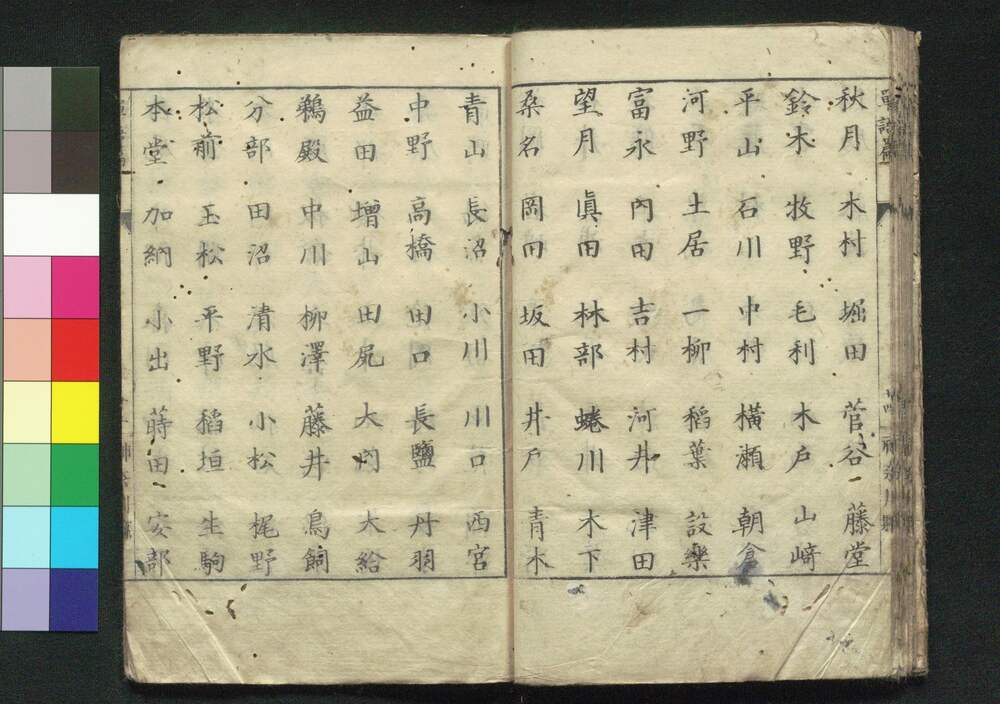 秋月 木村 堀田 菅谷 藤堂
鈴木 牧野 毛利 木戸 山﨑
平山 石川 中村 橫瀬 朝倉
河野 土居 一柳 稻葉 設樂
富永 內田 吉村 河井 津田
望月 眞田 林部 蜷川 木下
桑名 岡田 坂田 井戸 青木
青山 長沼 小川 川口 西宮
中野 高橋 田口 長鹽 丹羽
益田 增山 田尻 大関 大給
鵜殿 中川 柳澤 藤井 鳥飼
分部 田沼 清水 小松 梶野
松前 玉松 平野 稻垣 生駒
本堂 加納 小出 蒔田 安部